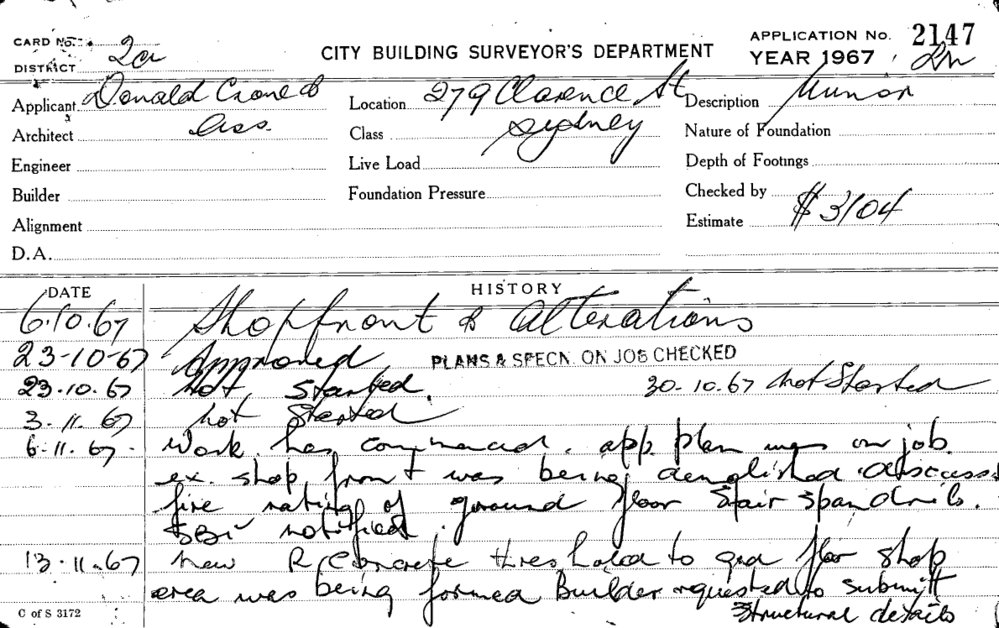 CARD No. 2a
DISTRICT
CITY BUILDING SURVEYOR'S DEPARTMENT
APPLICATION No. 2147
YEAR 1967
Applicant Donald Crone &
Location 279 Clarence St
Description Minor
Architect Ass.
Class Sydney
Nature of Foundation
Engineer
Live Load
Depth of Footings
Builder
Foundation Pressure
Checked by
Alignment
Estimate $3104
D.A.
DATE HISTORY
6.10.67 Shopfront & alterations
23-10-67 Approved PLANS & SPECN. ON JOB CHECKED
23.10.67 Not Started. 30.10.67 Not Started
3.11.67 not Started
6.11.67. Work has commenced. app. plan was on job.
ex. shop front was being demolished. discuss
fire rating of ground floor stair spandrils.
SBI notified.
13.11.67 new R Concrete threshold to grd flor shop
area was being formed Builder requested to submitt
structural details
C of S 3172